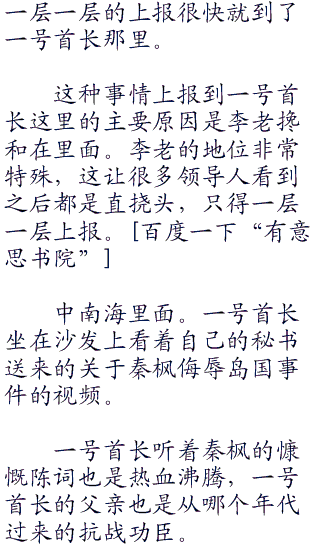 一层一层的上报很快就到了
一号首长那里。
这种事情上报到一号首
长这里的主要原因是李老搀
和在里面。李老的地位非常
特殊，这让很多领导人看到
之后都是直挠头，只得一层
一层上报。[百度一下“有意
思书院”]
中南海里面。一号首长
坐在沙发上看着自己的秘书
送来的关于秦枫侮辱岛国事
件的视频。
一号首长听着秦枫的慷
慨陈词也是热血沸腾，一号
首长的父亲也是从哪个年代
过来的抗战功臣。